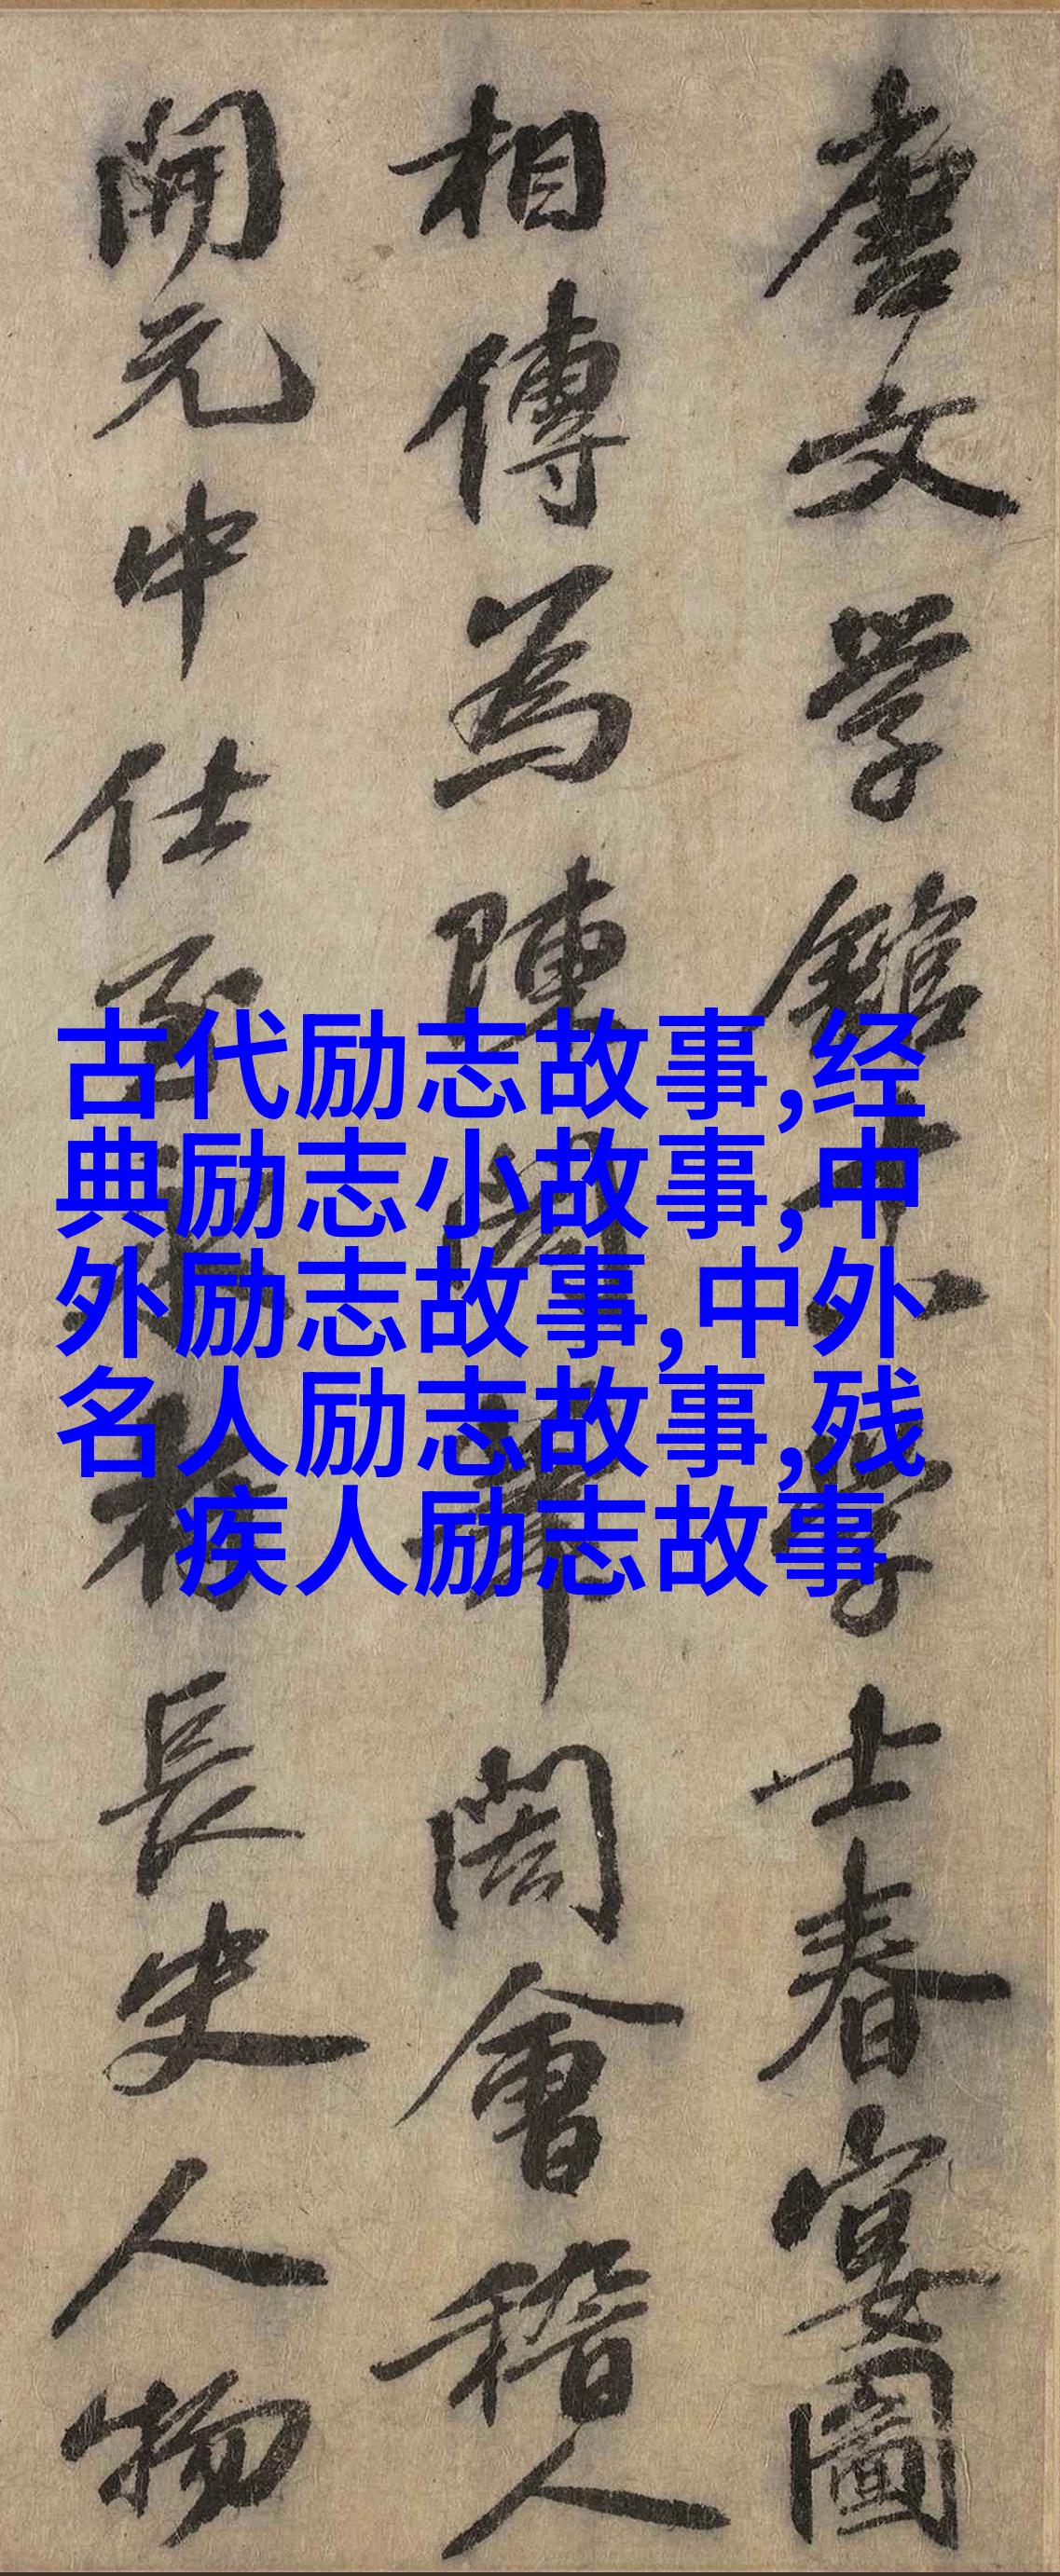 唐文学館十八学士春宴圖
相傳為陳閎筆閎會稽人
開元中仕至永府長史人物
古代励志故事,经
典励志小故事,中
外励志故事,中外
名人励志故事,残
疾人励志故事